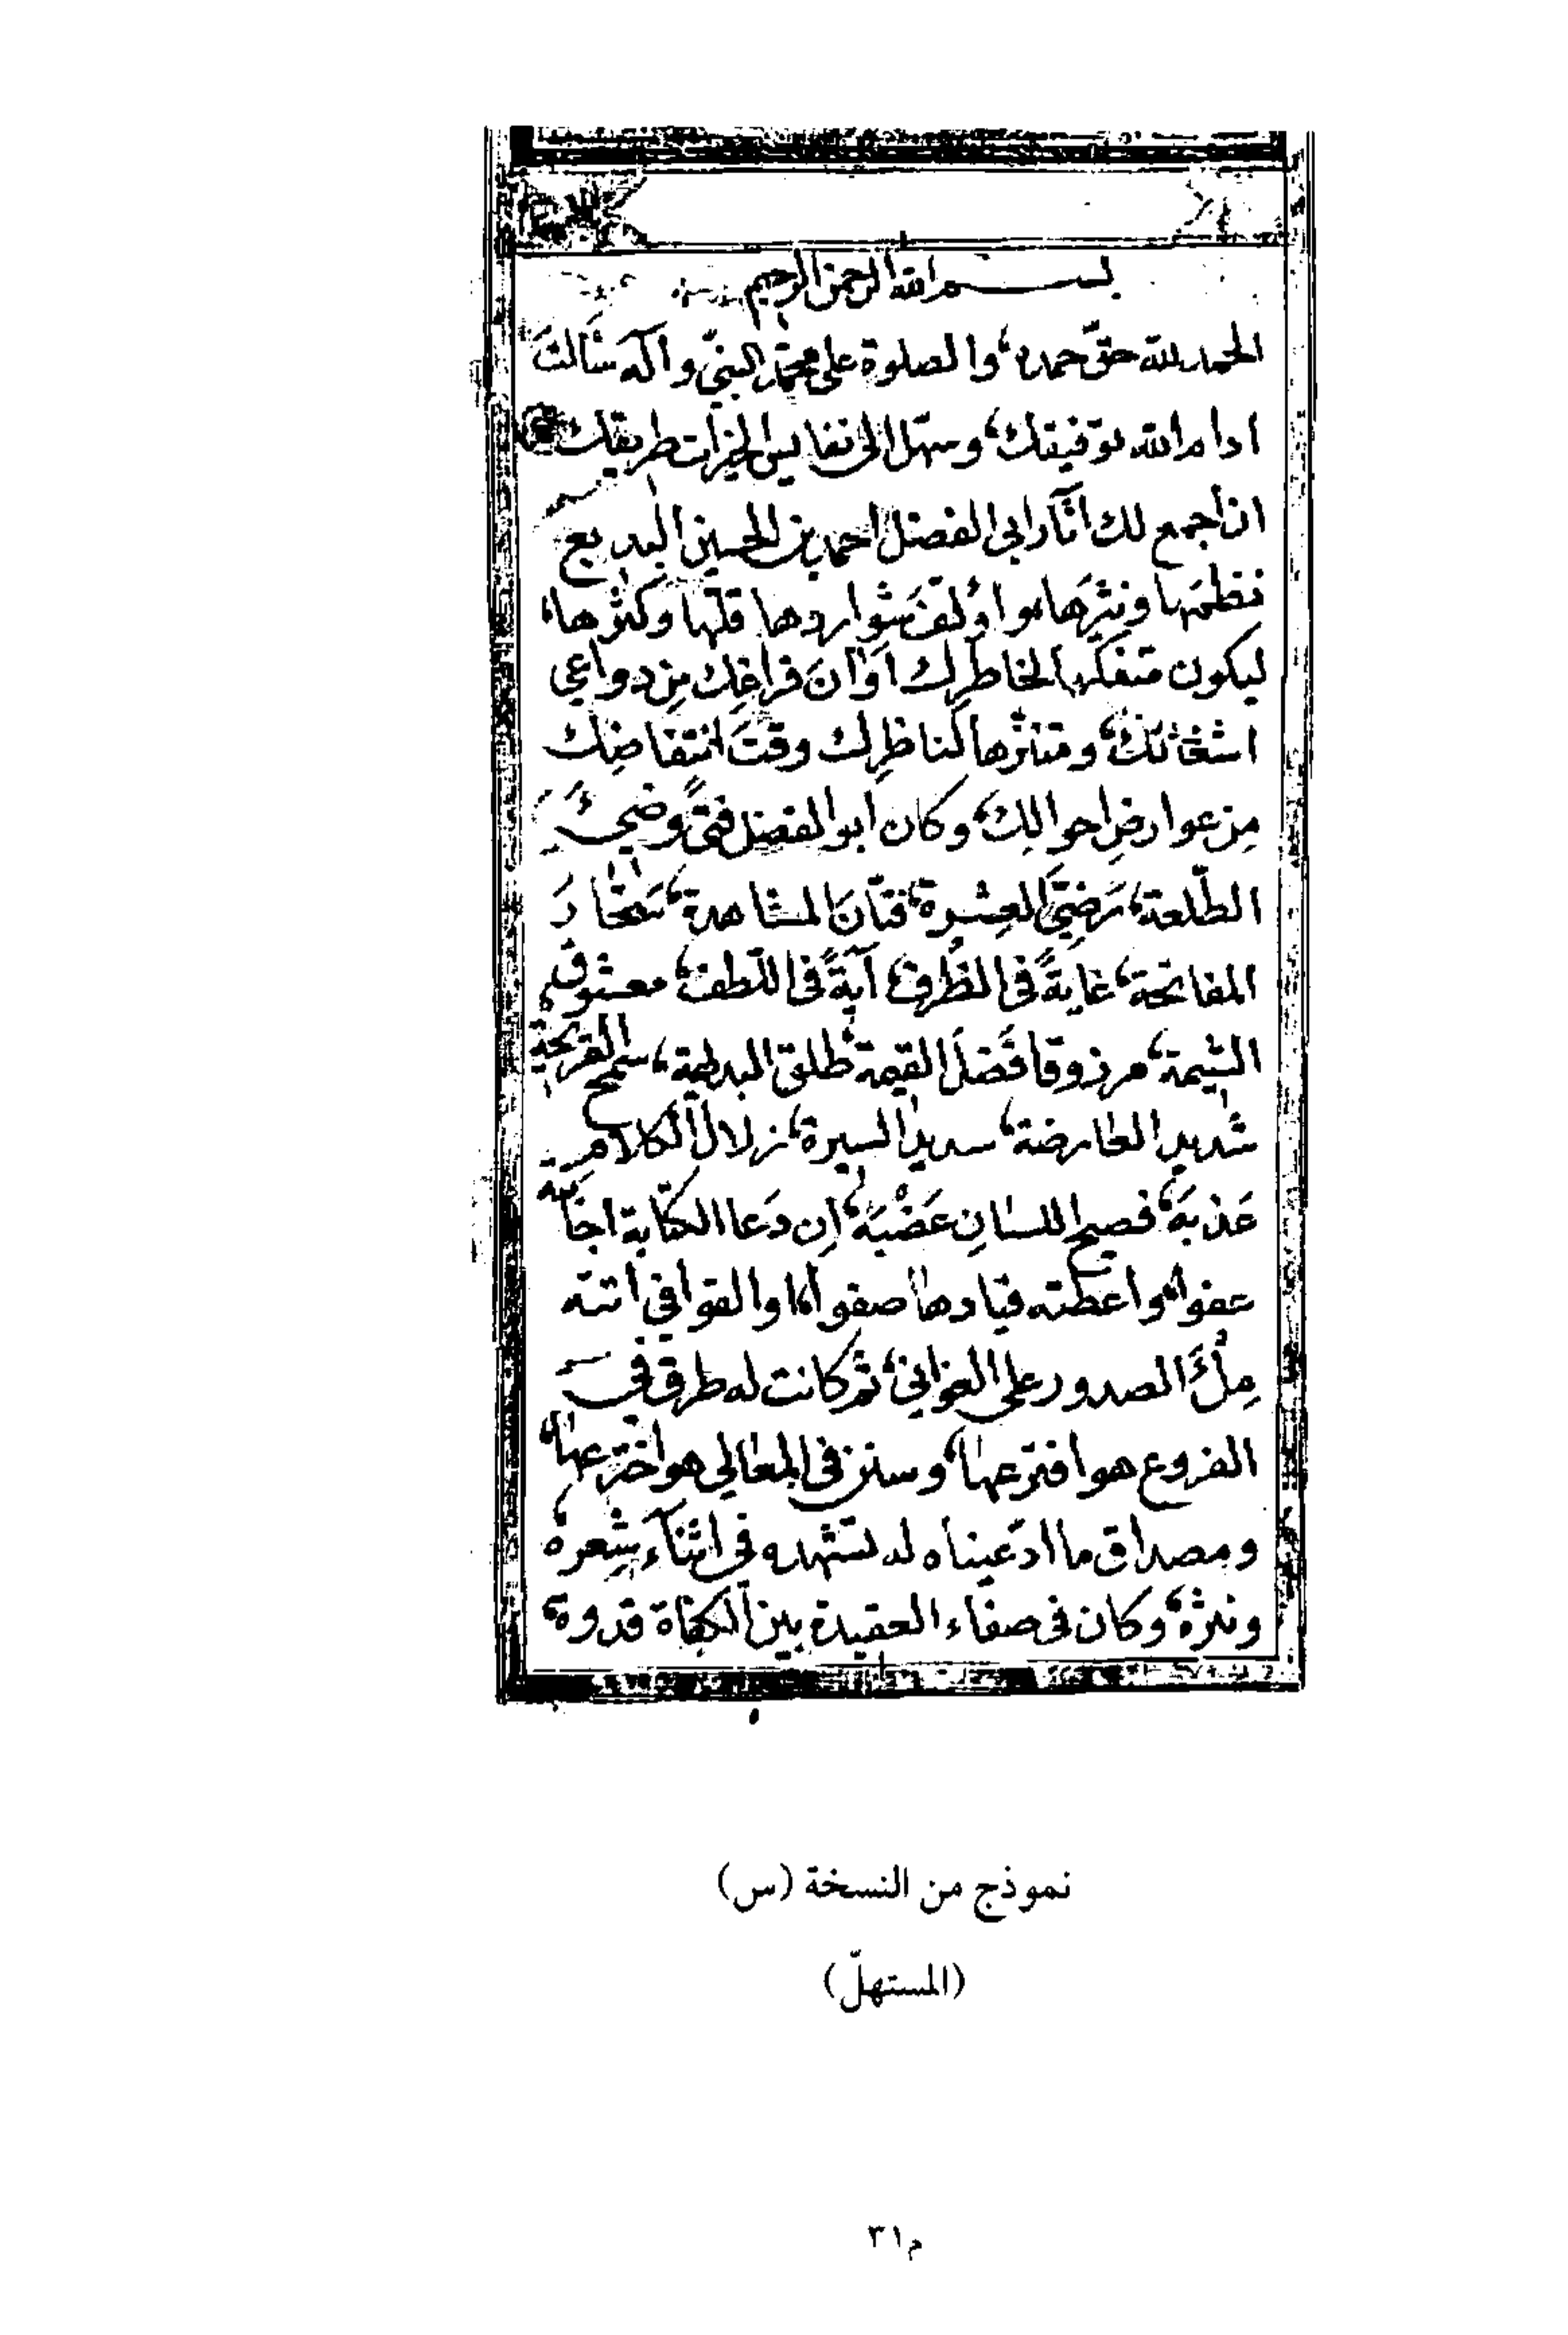 بسم الله الرحمن الرحيم
الحمد لله حقّ حمده، والصلوة على محمّد النبيّ وآله سَالتَ
ادام الله توفيقك، وسهّل الى نفايس الخيرات طريقك
ان اجمع لك اثآر ابى الفضل احمد بن الحسين البديع
نظمَها ونثرَها، واؤلّف شواردها قلّها وكثرها،
ليكون متفكّها لخاطرِك اَوَانَ فراغِك مِن دواعى
اشغالك، ومتنزّها لناظرِك وقتَ انتفاضِك
مِن عوارضِ احوالِك، وكان ابو الفضل فتىً وضىءَ
الطّلعة، رَضِىَّ العِشرة، فتّانَ المشاهدة، سَحّارَ
المفاتحة، غايةً فى الظُرف، آيةً فى اللّطف، معشوق
الشيمة، مرزوقا فَضلَ القيمة، طلق البديهة، سمح القريحة
شديد العارضة، سديد السيرة، زلال الكلامِ
عَذبَه، فصيح اللسانِ عَضْبَه، اِن دَعا الكتابة اجابته
عفوا، واعطته قيادها صفوا، او القوافى اتته
مِلْءَ الصدور على التوافى، ثم كانت له طرق فى
الفروع هو افترعها، وسنن فى المعالي هو اخترعها،
ومصداق ما ادّعيناه له تشهده فى اثنآء شِعره
ونثره، وكان فى صفاء العقيدة بين الكفاة قدوة،
نموذج من النسخة (س)
(المستهلّ)
م٣١